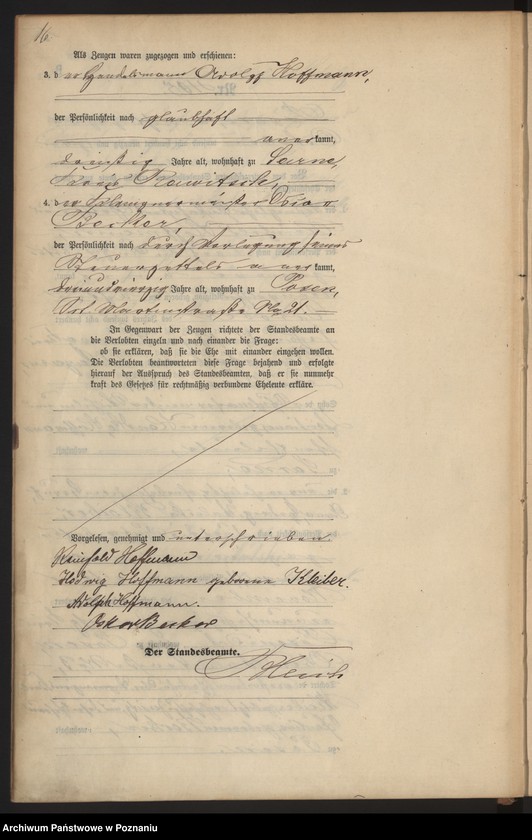 16.
Als Zeugen waren zugezogen und erschienen:
3. der Handelsmann Adolph Hoffmann,
der Persönlichkeit nach glaubhaft
anerkannt,
dreißig Jahre alt, wohnhaft zu Sarne,
Kreis Rawitsch,
4. der Klempnermeister Oskar
Becker,
der Persönlichkeit nach durch Vorlegung seines
Steuerzettels anerkannt,
Jahre alt, wohnhaft zu Posen,
Sct Martinstraße No 21.
In Gegenwart der Zeugen richtete der Standesbeamte an
die Verlobten einzeln und nach einander die Frage:
ob sie erklären, daß sie die Ehe mit einander eingehen wollen.
Die Verlobten beantworteten diese Frage bejahend und erfolgte
hierauf der Ausspruch des Standesbeamten, daß er sie nunmehr
kraft des Gesetzes für rechtmäßig verbundene Eheleute erkläre.
Vorgelesen, genehmigt und unterschrieben.
Reinhold Hoffmann
Hedwig Hoffmann geborene Kleiber.
Adolph Hoffmann.
Oskar Becker
Der Standesbeamte.
Archiwum Państwowe w Poznaniu